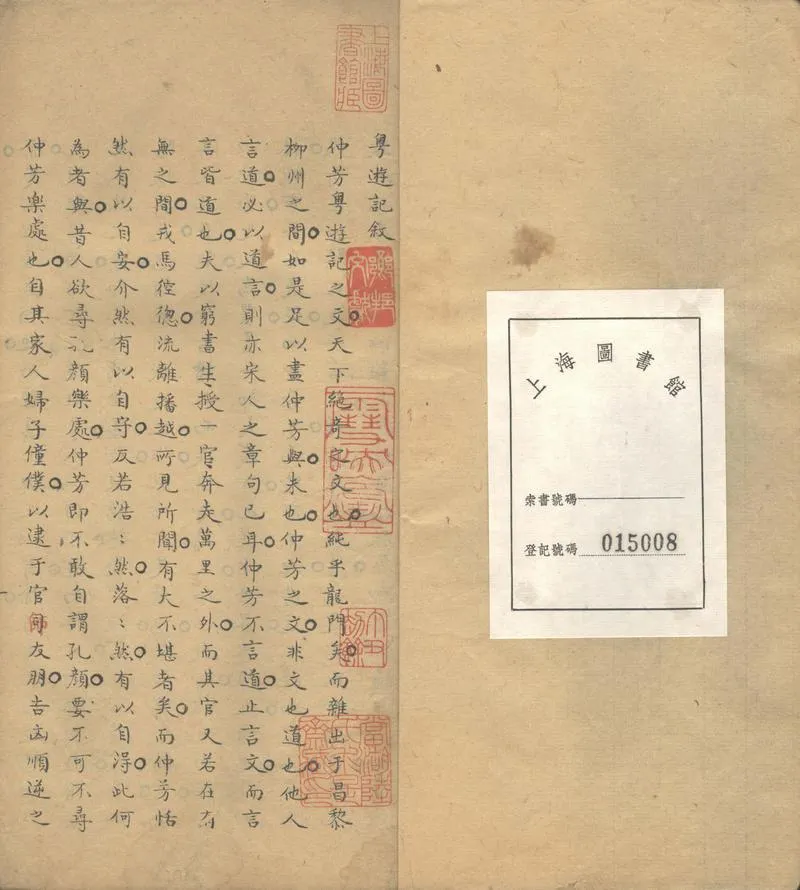 粵遊記敘
仲芳粵遊記之文天下絕奇之文也純乎龍門矣而雜出于昌黎
柳州之間如是足以盡仲芳與未也仲芳之文非文也道也他人
言道必以道言則亦宋人之章句已耳仲芳不言道止言文而言
言皆道也夫以窮書生授一官奔走萬里之外而其官又若在有
無之間戎馬倥傯流離播越所見所聞有大不堪者矣而仲芳恬
然有以自安介然有以自守反若浩〻然落〻然有以自得此何
為者與昔人欲尋孔顏樂處仲芳即不敢自謂孔顏要不可不尋
仲芳樂處也自其家人婦子僮僕以逮于官師友朋吉凶順逆之
上海圖書館藏
上海圖書館
索書號碼
登記號碼 015008